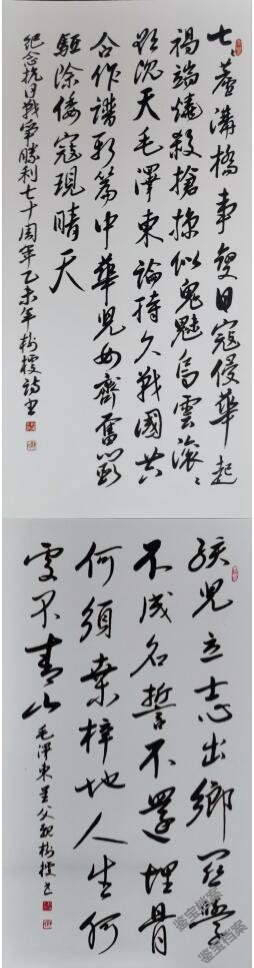 七〻蘆溝橋事變日寇侵華起
禍端燒殺搶掠似鬼魅烏雲滾〻
沉天毛澤東論持久戰國共
合作譜新篇中華兒女齊奮鬭
驅除倭寇現晴天
紀念抗日戰爭勝利七十周年乙未年树詩书
孩兒立志出鄉関學
不成名誓不還埋骨
何須桑梓地人生何
處不青山
毛澤東呈父親树书
鉴宝档案
鉴宝档案